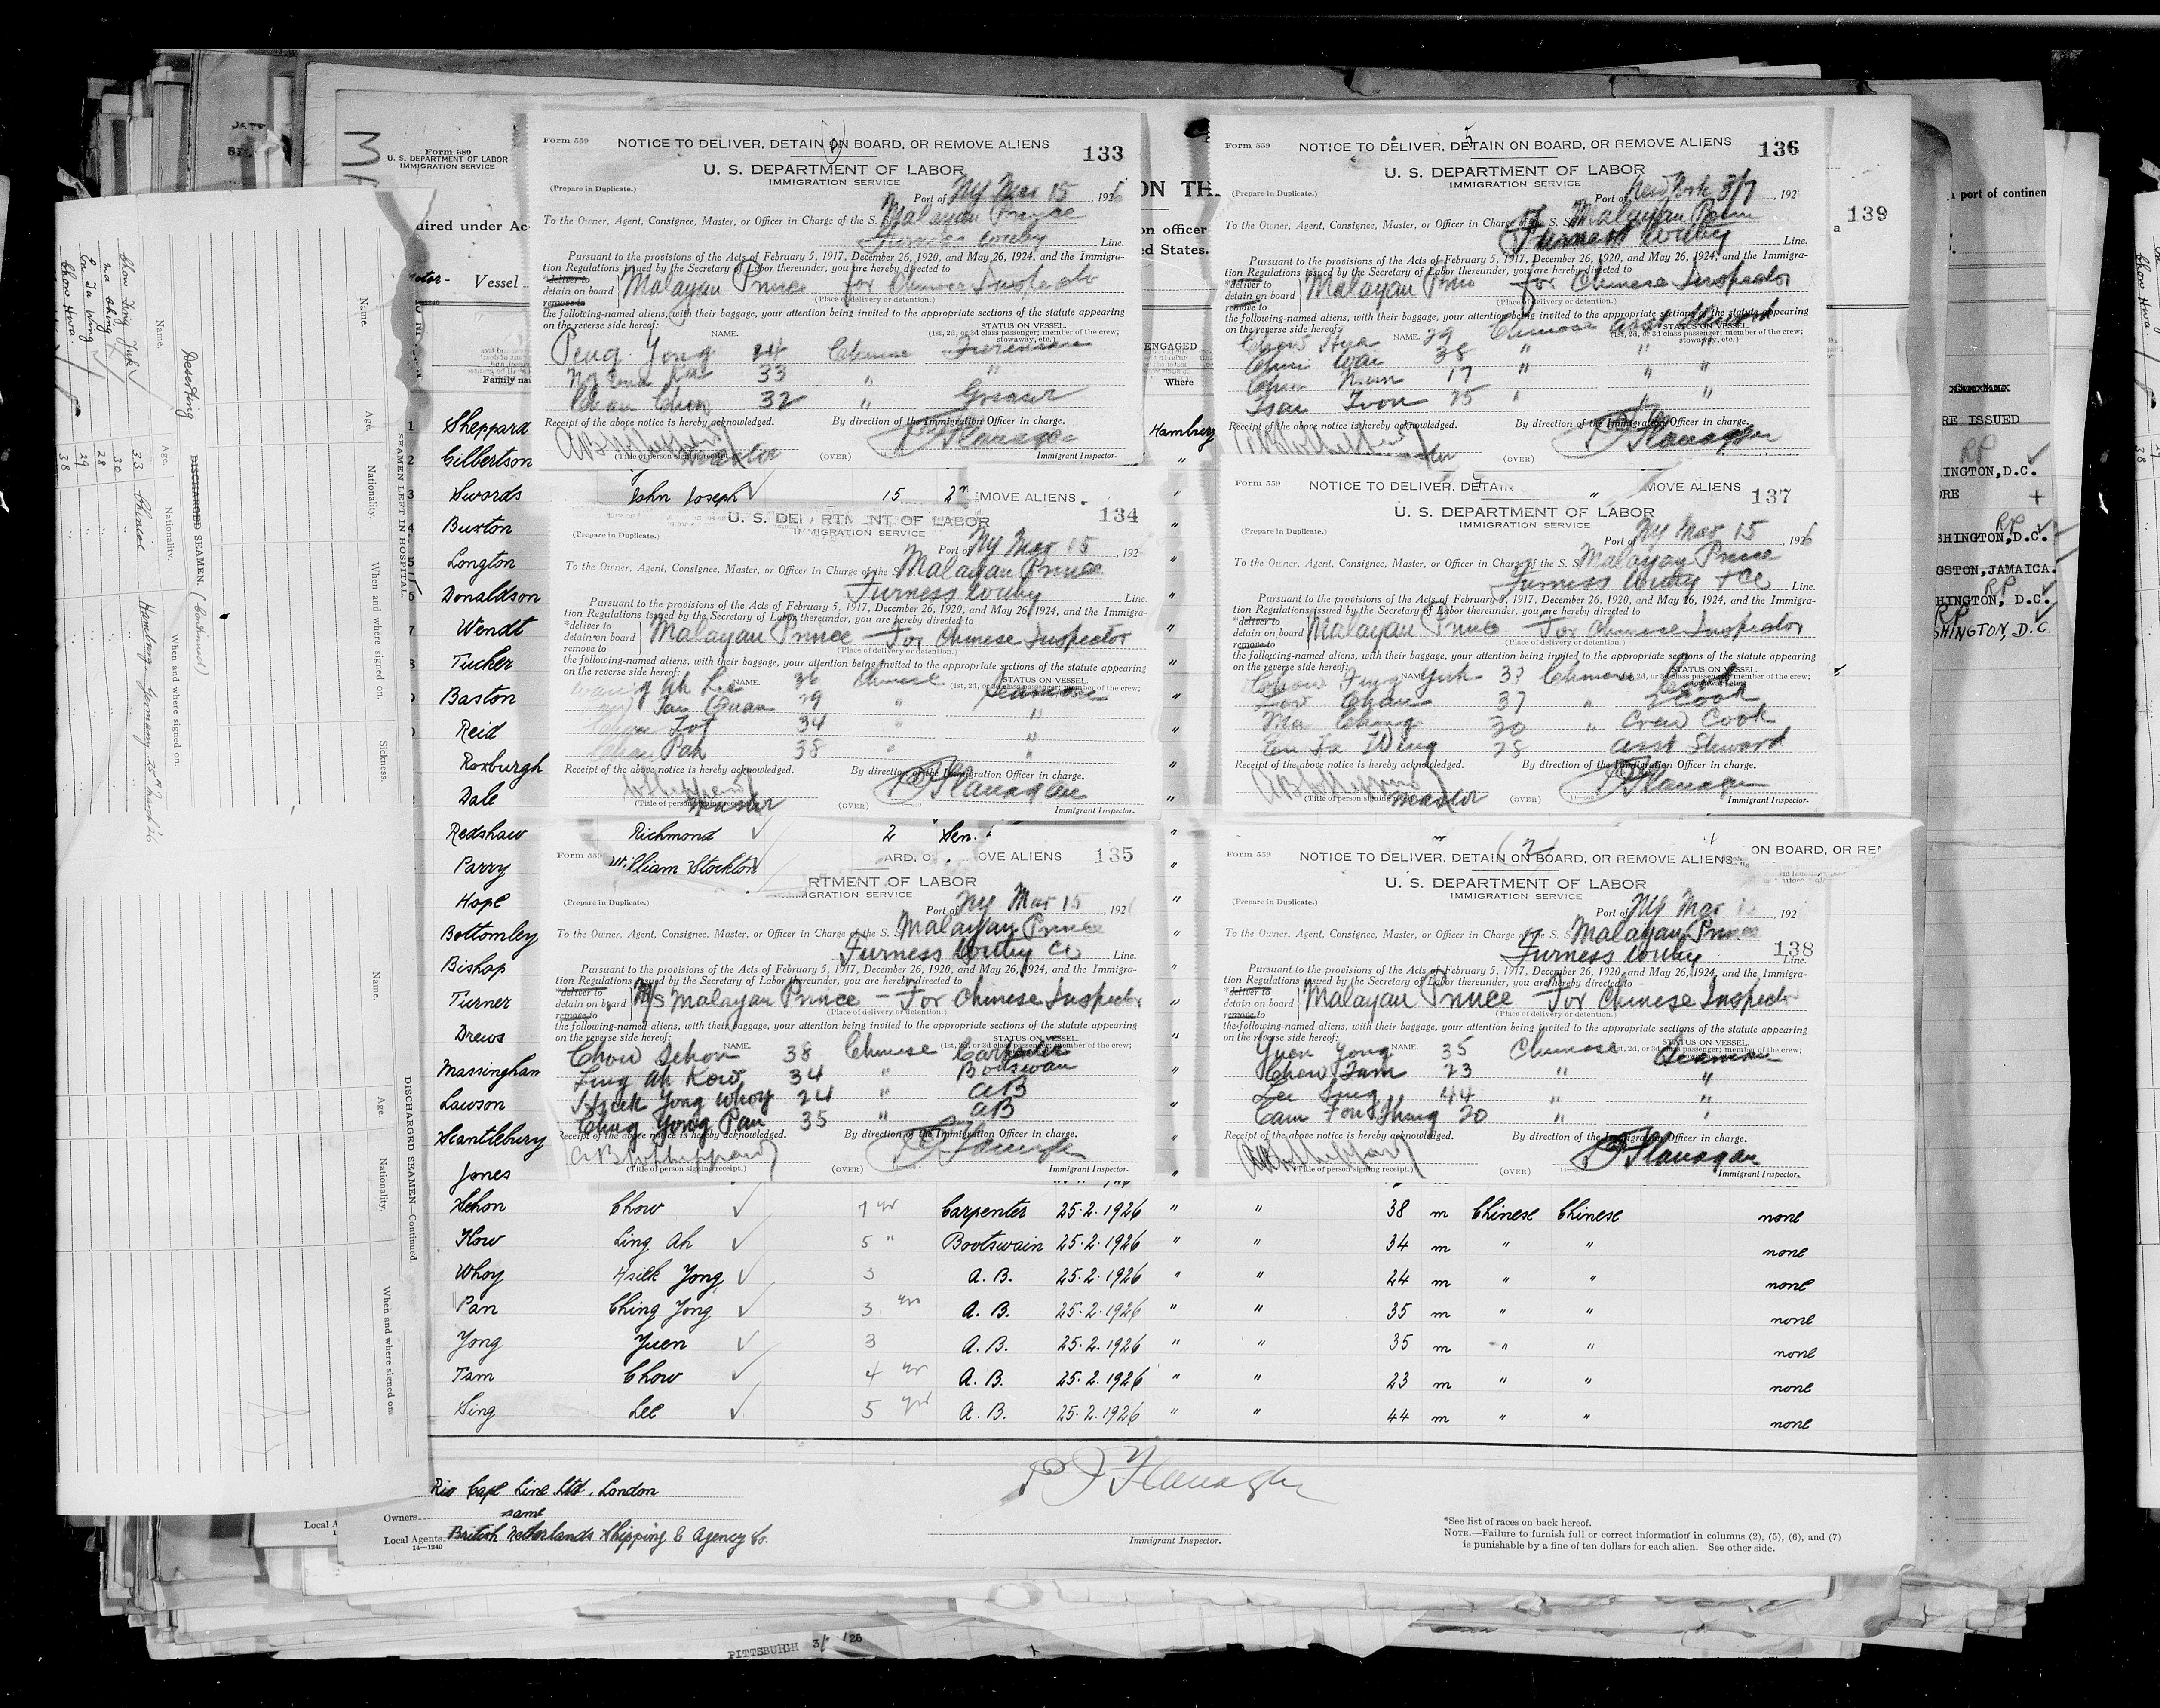 Form 680
U. S. DEPARTMENT OF LABOR
IMMIGRATION SERVICE
ON TH
port of continen
139
uired under Ac
on officer
ed States.
Vessel
ENGAGED
Family na
Where
RE ISSUED
RP
INGTON, D.C.
ORE +
RP
SHINGTON, D.C.
GSTON, JAMAICA.
RP
HINGTON, D.C.
RP
SHINGTON, D.C.
Form 559
NOTICE TO DELIVER, DETAIN ON BOARD, OR REMOVE ALIENS
133
U. S. DEPARTMENT OF LABOR
IMMIGRATION SERVICE
(Prepare in Duplicate.)
Port of NY Mar 15 1926
To the Owner, Agent, Consignee, Master, or Officer in Charge of the S. S. Malayan Prince
Furness Withy Line.
Pursuant to the provisions of the Acts of February 5, 1917, December 26, 1920, and May 26, 1924, and the Immigra-
tion Regulations issued by the Secretary of Labor thereunder, you are hereby directed to
*deliver to
detain on board Malayan Prince for Chinese Inspector
remove to
(Place of delivery or detention.)
the following-named aliens, with their baggage, your attention being invited to the appropriate sections of the statute appearing
on the reverse side hereof:
NAME.
STATUS ON VESSEL
(1st, 2d, or 3d class passenger; member of the crew; stowaway, etc.)
Peng Yong 44 Chinese Fireman
33 " "
Chan Chow 32 " Greaser
Receipt of the above notice is hereby acknowledged.
By direction of the Immigration Officer in charge.
Master
P J Flanagan
(Title of person signing receipt.)
(OVER)
Immigrant Inspector.
Form 559
NOTICE TO DELIVER, DETAIN ON BOARD, OR REMOVE ALIENS
136
5
U. S. DEPARTMENT OF LABOR
IMMIGRATION SERVICE
(Prepare in Duplicate.)
Port of New York 192
To the Owner, Agent, Consignee, Master, or Officer in Charge of the S. S. Malayan Prince
Furness Withy Line.
Pursuant to the provisions of the Acts of February 5, 1917, December 26, 1920, and May 26, 1924, and the Immigra-
tion Regulations issued by the Secretary of Labor thereunder, you are hereby directed to
*deliver to
detain on board Malayan Prince for Chinese Inspector
remove to
(Place of delivery or detention.)
the following-named aliens, with their baggage, your attention being invited to the appropriate sections of the statute appearing
on the reverse side hereof:
NAME.
STATUS ON VESSEL
(1st, 2d, or 3d class passenger; member of the crew; stowaway, etc.)
Chow Hwa 29 Chinese asst Steward
Wai 38 " " "
Chan 17 " " "
Tsai 25 " " "
Receipt of the above notice is hereby acknowledged.
By direction of the Immigration Officer in charge.
P J Flanagan
(OVER)
John Joseph 15 2"
MOVE ALIENS
134
U. S. DEPARTMENT OF LABOR
IMMIGRATION SERVICE
(Prepare in Duplicate.)
Port of NY Mar 15 192
To the Owner, Agent, Consignee, Master, or Officer in Charge of the S. Malayan Prince
Furness Withy Line.
Pursuant to the provisions of the Acts of February 5, 1917, December 26, 1920, and May 26, 1924, and the Immigra-
tion Regulations issued by the Secretary of Labor thereunder, you are hereby directed to
*deliver to
detain on board Malayan Prince - For Chinese Inspector
remove to
(Place of delivery or detention.)
the following-named aliens, with their baggage, your attention being invited to the appropriate sections of the statute appearing
on the reverse side hereof:
NAME.
STATUS ON VESSEL
(1st, 2d, or 3d class passenger; member of the crew;
Ah Lee 36 Chinese Seaman
Quan 29 " "
34 " "
Pah 38 " "
Receipt of the above notice is hereby acknowledged.
By direction of the Immigration Officer in charge.
Master
P J Flanagan
(Title of person signing receipt.)
(OVER)
Immigrant Inspector.
Form 559
NOTICE TO DELIVER, DETAIN
MOVE ALIENS
137
U. S. DEPARTMENT OF LABOR
IMMIGRATION SERVICE
(Prepare in Duplicate.)
Port of NY Mar 15 1926
To the Owner, Agent, Consignee, Master, or Officer in Charge of the S. S. Malayan Prince
Furness Withy & Co Line.
Pursuant to the provisions of the Acts of February 5, 1917, December 26, 1920, and May 26, 1924, and the Immigra-
tion Regulations issued by the Secretary of Labor thereunder, you are hereby directed to
*deliver to
detain on board Malayan Prince For Chinese Inspector
remove to
(Place of delivery or detention.)
the following-named aliens, with their baggage, your attention being invited to the appropriate sections of the statute appearing
on the reverse side hereof:
NAME.
STATUS ON VESSEL
Chow Jing Yuk 33 Chinese Cook
Chan 37 " Cook
Ma Ching 30 " Crew Cook
En Ja Wing 28 asst Steward
Receipt of the above notice is hereby acknowledged.
By direction of the Immigration Officer in charge.
Master
P J Flanagan
(Title of person signing receipt.)
(OVER)
Immigrant Inspector.
Richmond 2 " Sen. "
William Stockton
Form 559
ARD, O
OVE ALIENS
135
RTMENT OF LABOR
IMMIGRATION SERVICE
(Prepare in Duplicate.)
Port of NY Mar 15 192
To the Owner, Agent, Consignee, Master, or Officer in Charge of the S. S. Malayan Prince
Furness Withy Co Line.
Pursuant to the provisions of the Acts of February 5, 1917, December 26, 1920, and May 26, 1924, and the Immigra-
tion Regulations issued by the Secretary of Labor thereunder, you are hereby directed to
*deliver to
detain on board M/s Malayan Prince - For Chinese Inspector
remove to
(Place of delivery or detention.)
the following-named aliens, with their baggage, your attention being invited to the appropriate sections of the statute appearing
on the reverse side hereof:
NAME.
STATUS ON VESSEL
(1st, 2d, or 3d class passenger; member of the crew;
Chow Sehon 38 Chinese Carpenter
Ling Ah Kow 34 " Botswain
Hsiek Yong Whoy 24 " AB
Ching Yong Pan 35 " AB
Receipt of the above notice is hereby acknowledged.
By direction of the Immigration Officer in charge.
P J Flanagan
(Title of person signing receipt.)
(OVER)
Immigrant Inspector.
Form 559
NOTICE TO DELIVER, DETAIN ON BOARD, OR REMOVE ALIENS
ON BOARD, OR REM
U. S. DEPARTMENT OF LABOR
IMMIGRATION SERVICE
(Prepare in Duplicate.)
Port of NY Mar 15 192
To the Owner, Agent, Consignee, Master, or Officer in Charge of the S. S. Malayan Prince
138
Furness Withy Line.
Pursuant to the provisions of the Acts of February 5, 1917, December 26, 1920, and May 26, 1924, and the Immigra-
tion Regulations issued by the Secretary of Labor thereunder, you are hereby directed to
*deliver to
detain on board Malayan Prince - For Chinese Inspector
remove to
(Place of delivery or detention.)
the following-named aliens, with their baggage, your attention being invited to the appropriate sections of the statute appearing
on the reverse side hereof:
NAME.
STATUS ON VESSEL
Yuen Yong 35 Chinese Seaman
Chow Tam 23 " "
Lee Sing 44 " "
20 " "
Receipt of the above notice is hereby acknowledged.
By direction of the Immigration Officer in charge.
P J Flanagan
(Title of person signing receipt.)
(OVER)
Immigrant Inspector.
1 Sheppard Hamburg
2 Gilbertson "
3 Swords "
4 Buxton "
5 Longton "
6 Donaldson "
7 Wendt "
8 Tucker "
Baston "
Reid "
Roxburgh "
Dale "
Redshaw "
Parry "
Hope "
Bottomley "
Bishop "
Turner "
Drews "
Massingham "
Lawson "
Scantlebury "
Jones "
Sehon Chow 7 yr Carpenter 25.2.1926 " " 38 m Chinese Chinese none
Kow Ling Ah 5 " Bootswain 25.2.1926 " " 34 m " " none
Whoy Hsilk Yong 3 A. B. 25.2.1926 " " 24 m " " none
Pan Ching Yong 3 yrs A. B. 25.2.1926 " " 35 m " " none
Yong Yuen 3 A. B. 25.2.1926 " " 35 m " " none
Tam Chow 4 yr A. B. 25.2.1926 " " 23 m " " none
Sing Lee 5 yrs A. B. 25.2.1926 " " 44 m " " none
P J Flanagan
Rio Cape Line Ltd, London
Owners same
Local Agents British Netherlands Shipping & Agency Co.
14-1240
Immigrant Inspector.
*See list of races on back hereof.
NOTE.—Failure to furnish full or correct information in columns (2), (5), (6), and (7)
is punishable by a fine of ten dollars for each alien. See other side.
Local A
PITTSBURGH 3/ /26
SEAMEN LEFT IN HOSPITAL.
Name. Age. Nationality. When and where signed on. Sickness.
Deserting
DISCHARGED SEAMEN. (Continued)
Name. Age. Nationality. When and where signed on.
Chow Jing Yuk 33 Chinese Hamburg Germany 25th March 26
Ma Ching 30 "
En Ja Wing 28 "
29 "
Chow Hwa 38 "
DISCHARGED SEAMEN—Continued.
Name. Age. Nationality. When and where signed on